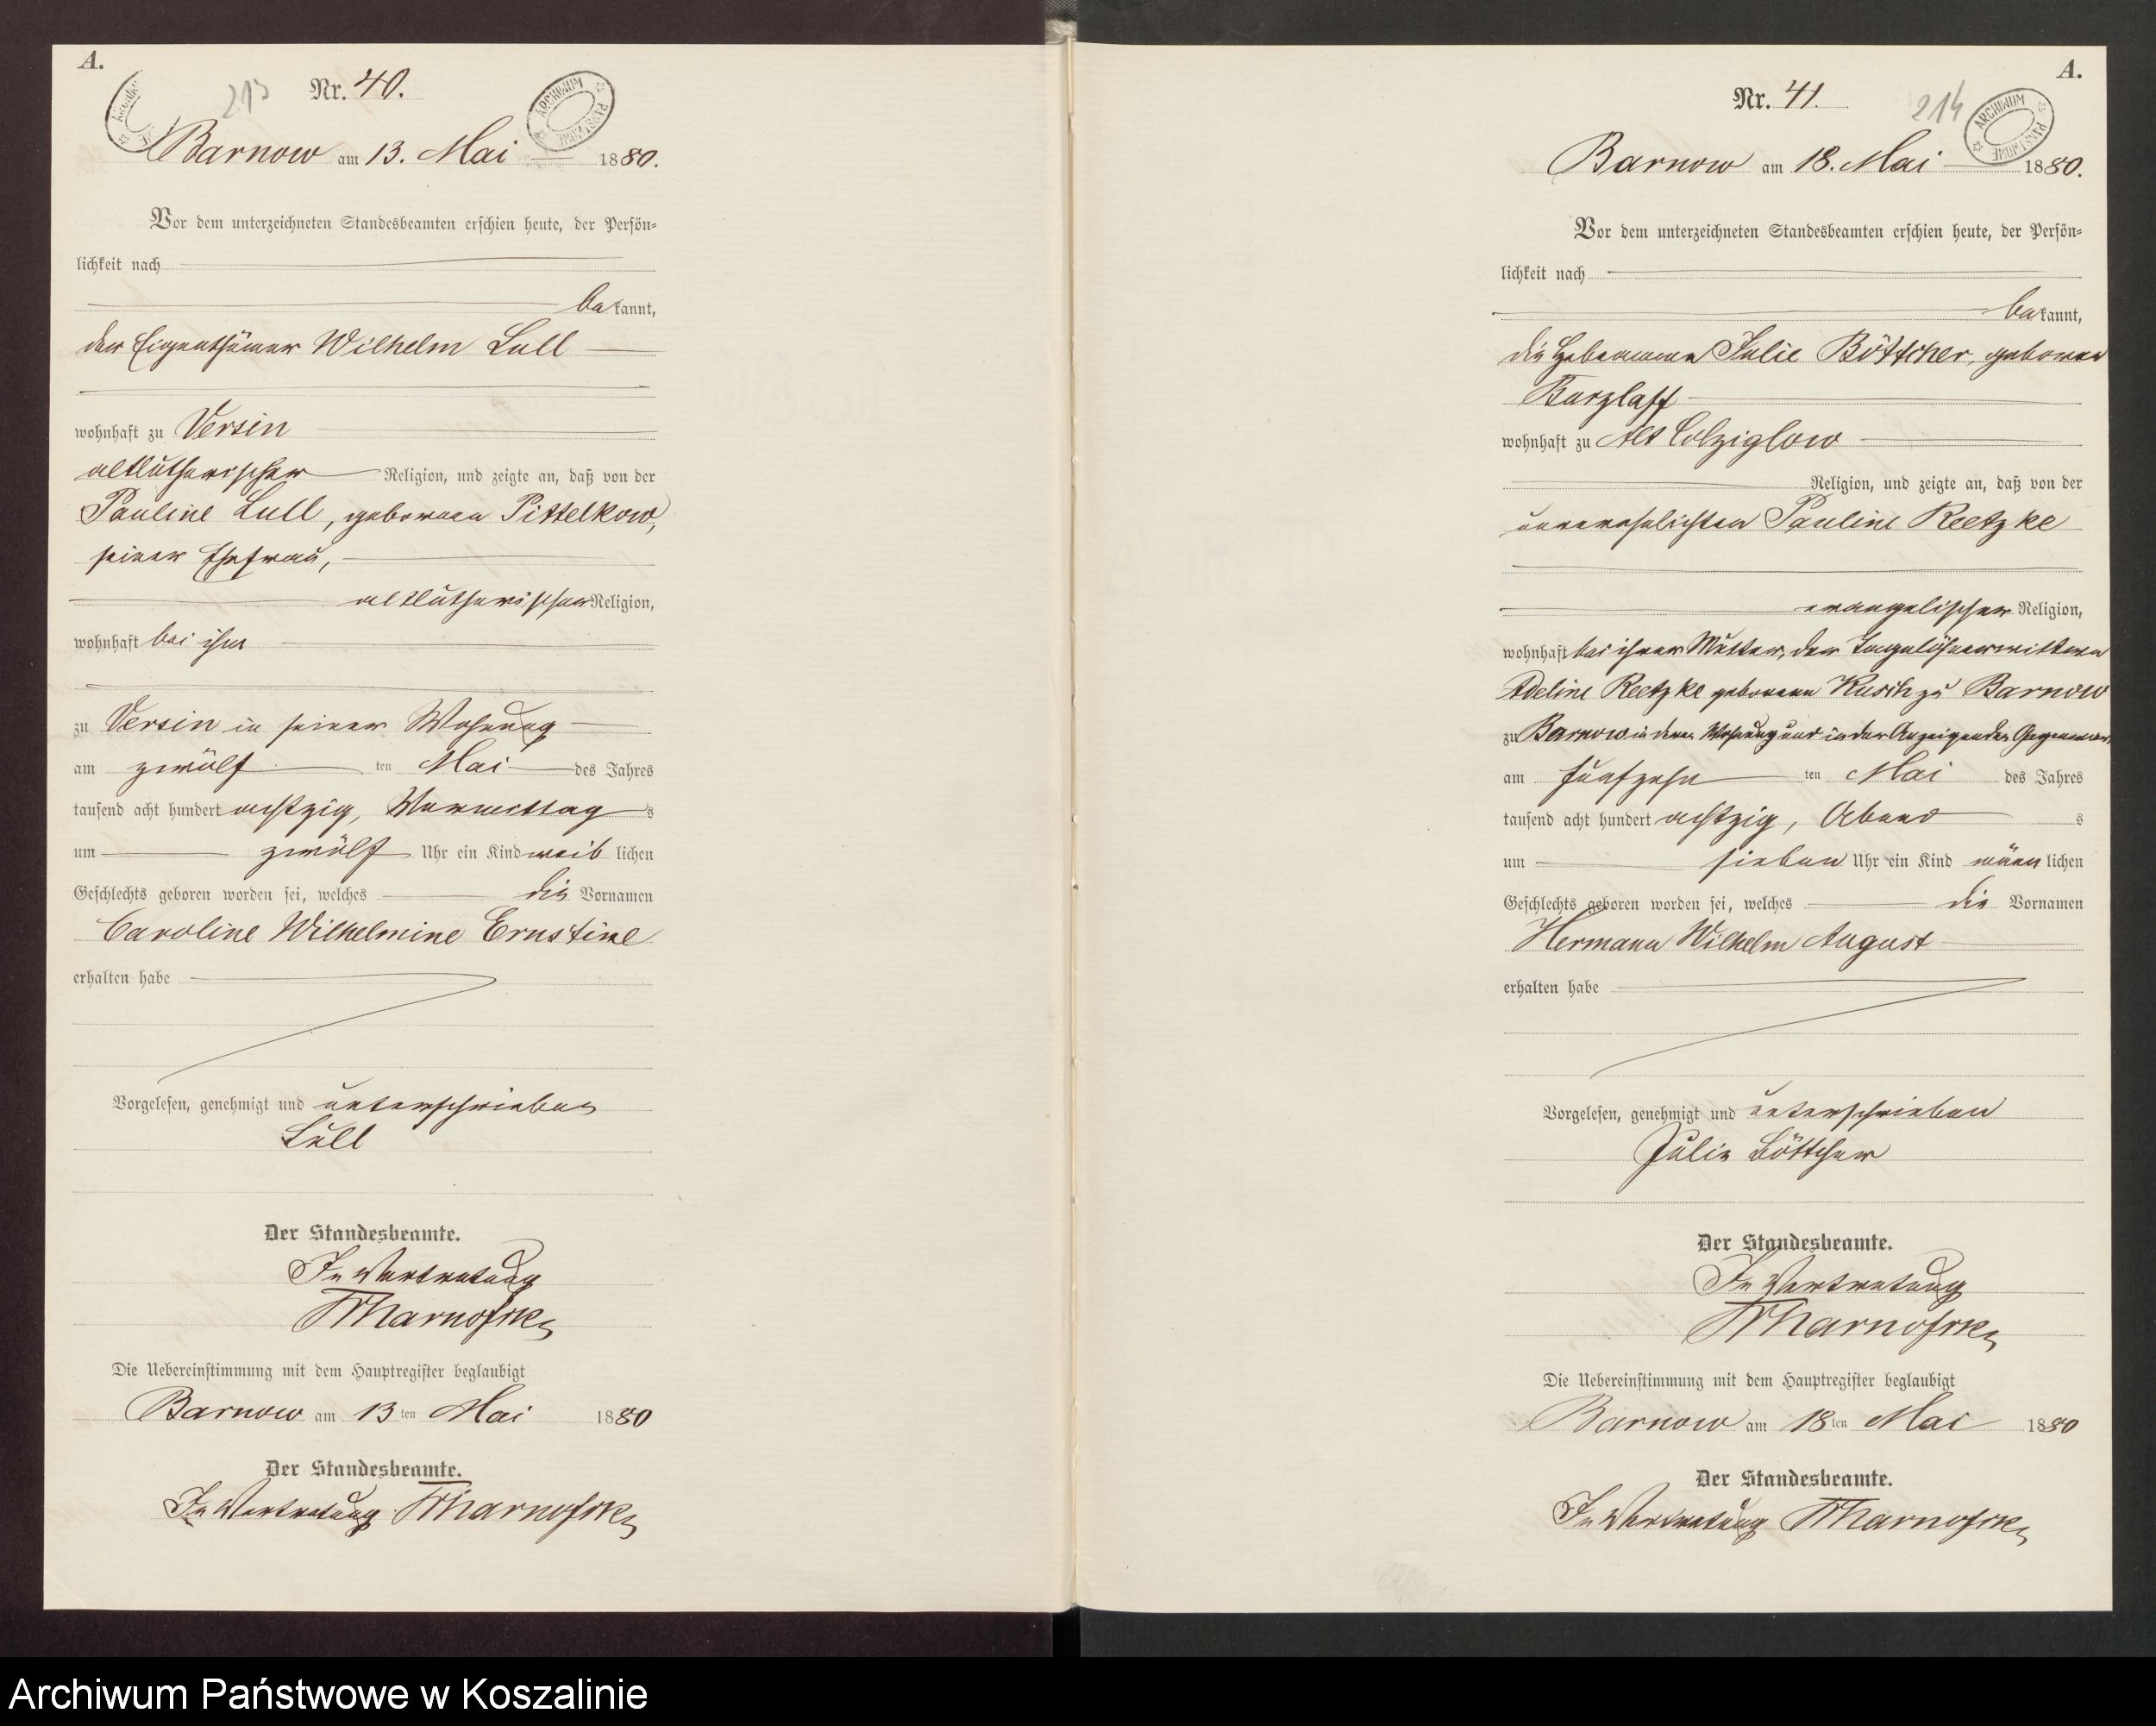 A.
213
Nr. 40.
ARCHIWUM PAŃSTWOWE
Barnow am 13. Mai 1880.
Vor dem unterzeichneten Standesbeamten erschien heute, der Persön-
lichkeit nach
bekannt,
der Eigenthümer Wilhelm Lull
wohnhaft zu Versin
altlutherischer Religion, und zeigte an, daß von der
Pauline Lull, geborenen Pittelkow,
seiner Ehefrau,
altlutherischer Religion,
wohnhaft bei ihm
zu Versin in seiner Wohnung
am zwölf ten Mai des Jahres
tausend acht hundert achtzig, Vormittag s
um zwölf Uhr ein Kind weib lichen
Geschlechts geboren worden sei, welches die Vornamen
Caroline Wilhelmine Ernstine
erhalten habe
Vorgelesen, genehmigt und unterschrieben
Lull
Der Standesbeamte.
In Vertretung
Die Uebereinstimmung mit dem Hauptregister beglaubigt
Barnow am 13 ten Mai 1880
Der Standesbeamte.
In Vertretung
A.
Nr. 41.
214
ARCHIWUM PAŃSTWOWE
Barnow am 18. Mai 1880.
Vor dem unterzeichneten Standesbeamten erschien heute, der Persön-
lichkeit nach
bekannt,
die Hebeamme Julie Böttcher, geborene
Barzlaff
wohnhaft zu Alt Colziglow
Religion, und zeigte an, daß von der
unverehelichten Pauline Reetzke
evangelischer Religion,
wohnhaft bei ihrer Mutter, der Tagelöhnerwittwe
Adeline Reetzke geborenen Kusch zu Barnow
zu Barnow in deren Wohnung und in der Anzeigenden Gegenwart
am fünfzehn ten Mai des Jahres
tausend acht hundert achtzig, Abend s
um sieben Uhr ein Kind männ lichen
Geschlechts geboren worden sei, welches die Vornamen
Hermann Wilhelm August
erhalten habe
Vorgelesen, genehmigt und unterschrieben
Julie Böttcher
Der Standesbeamte.
In Vertretung
Die Uebereinstimmung mit dem Hauptregister beglaubigt
Barnow am 18 ten Mai 1880
Der Standesbeamte.
In Vertretung
Archiwum Państwowe w Koszalinie